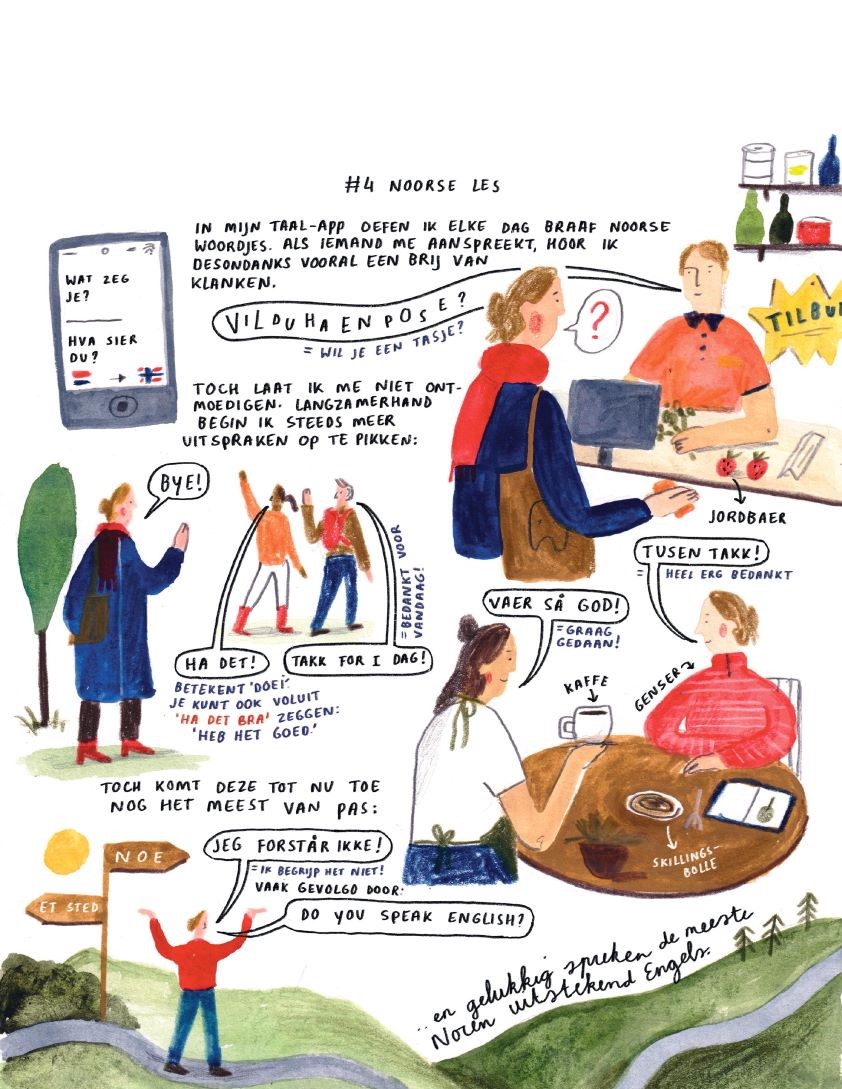 #4 NOORSE LES
IN MIJN TAAL-APP OEFEN IK ELKE DAG BRAAF NOORSE
WOORDJES. ALS IEMAND ME AANSPREEKT, HOOR IK
DESONDANKS VOORAL EEN BRIJ VAN
KLANKEN.
WAT ZEG
JE?
HVA SIER
DU?
VIL DU HA EN POSE?
= WIL JE EEN TASJE?
?
TILBU
JORDBAER
TOCH LAAT IK ME NIET ONT-
MOEDIGEN. LANGZAMERHAND
BEGIN IK STEEDS MEER
UITSPRAKEN OP TE PIKKEN:
BYE!
HA DET!
BETEKENT 'DOEI'.
JE KUNT OOK VOLUIT
'HA DET BRA' ZEGGEN:
'HEB HET GOED.'
TAKK FOR I DAG!
= BEDANKT VOOR
VANDAAG!
TUSEN TAKK!
= HEEL ERG BEDANKT
VAER SÅ GOD!
= GRAAG
GEDAAN!
KAFFE
GENSER
SKILLINGS-
BOLLE
TOCH KOMT DEZE TOT NU TOE
NOG HET MEEST VAN PAS:
NOE
ET STED
JEG FORSTÅR IKKE!
= IK BEGRIJP HET NIET!
VAAK GEVOLGD DOOR:
DO YOU SPEAK ENGLISH?
..en gelukkig spreken de meeste
Noren uitstekend Engels.